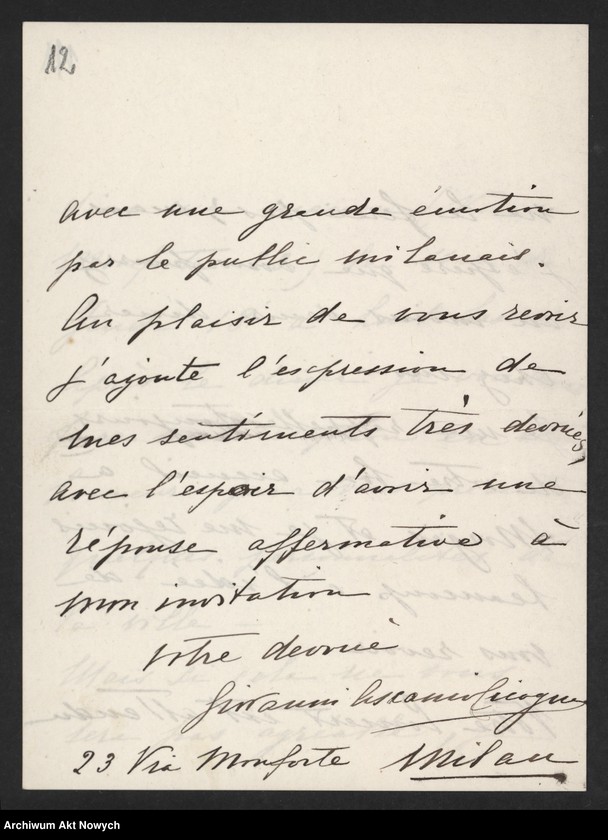 12
avec une grande émotion
par le public milanais.
Au plaisir de vous revoir
j'ajoute l'expression de
mes sentiments très devoués,
avec l'espoir d'avoir une
réponse affermative à
mon invitation
Votre devoué
Giovanni Ascanio Cicogna
23 Via Monforte Milan
Archiwum Akt Nowych